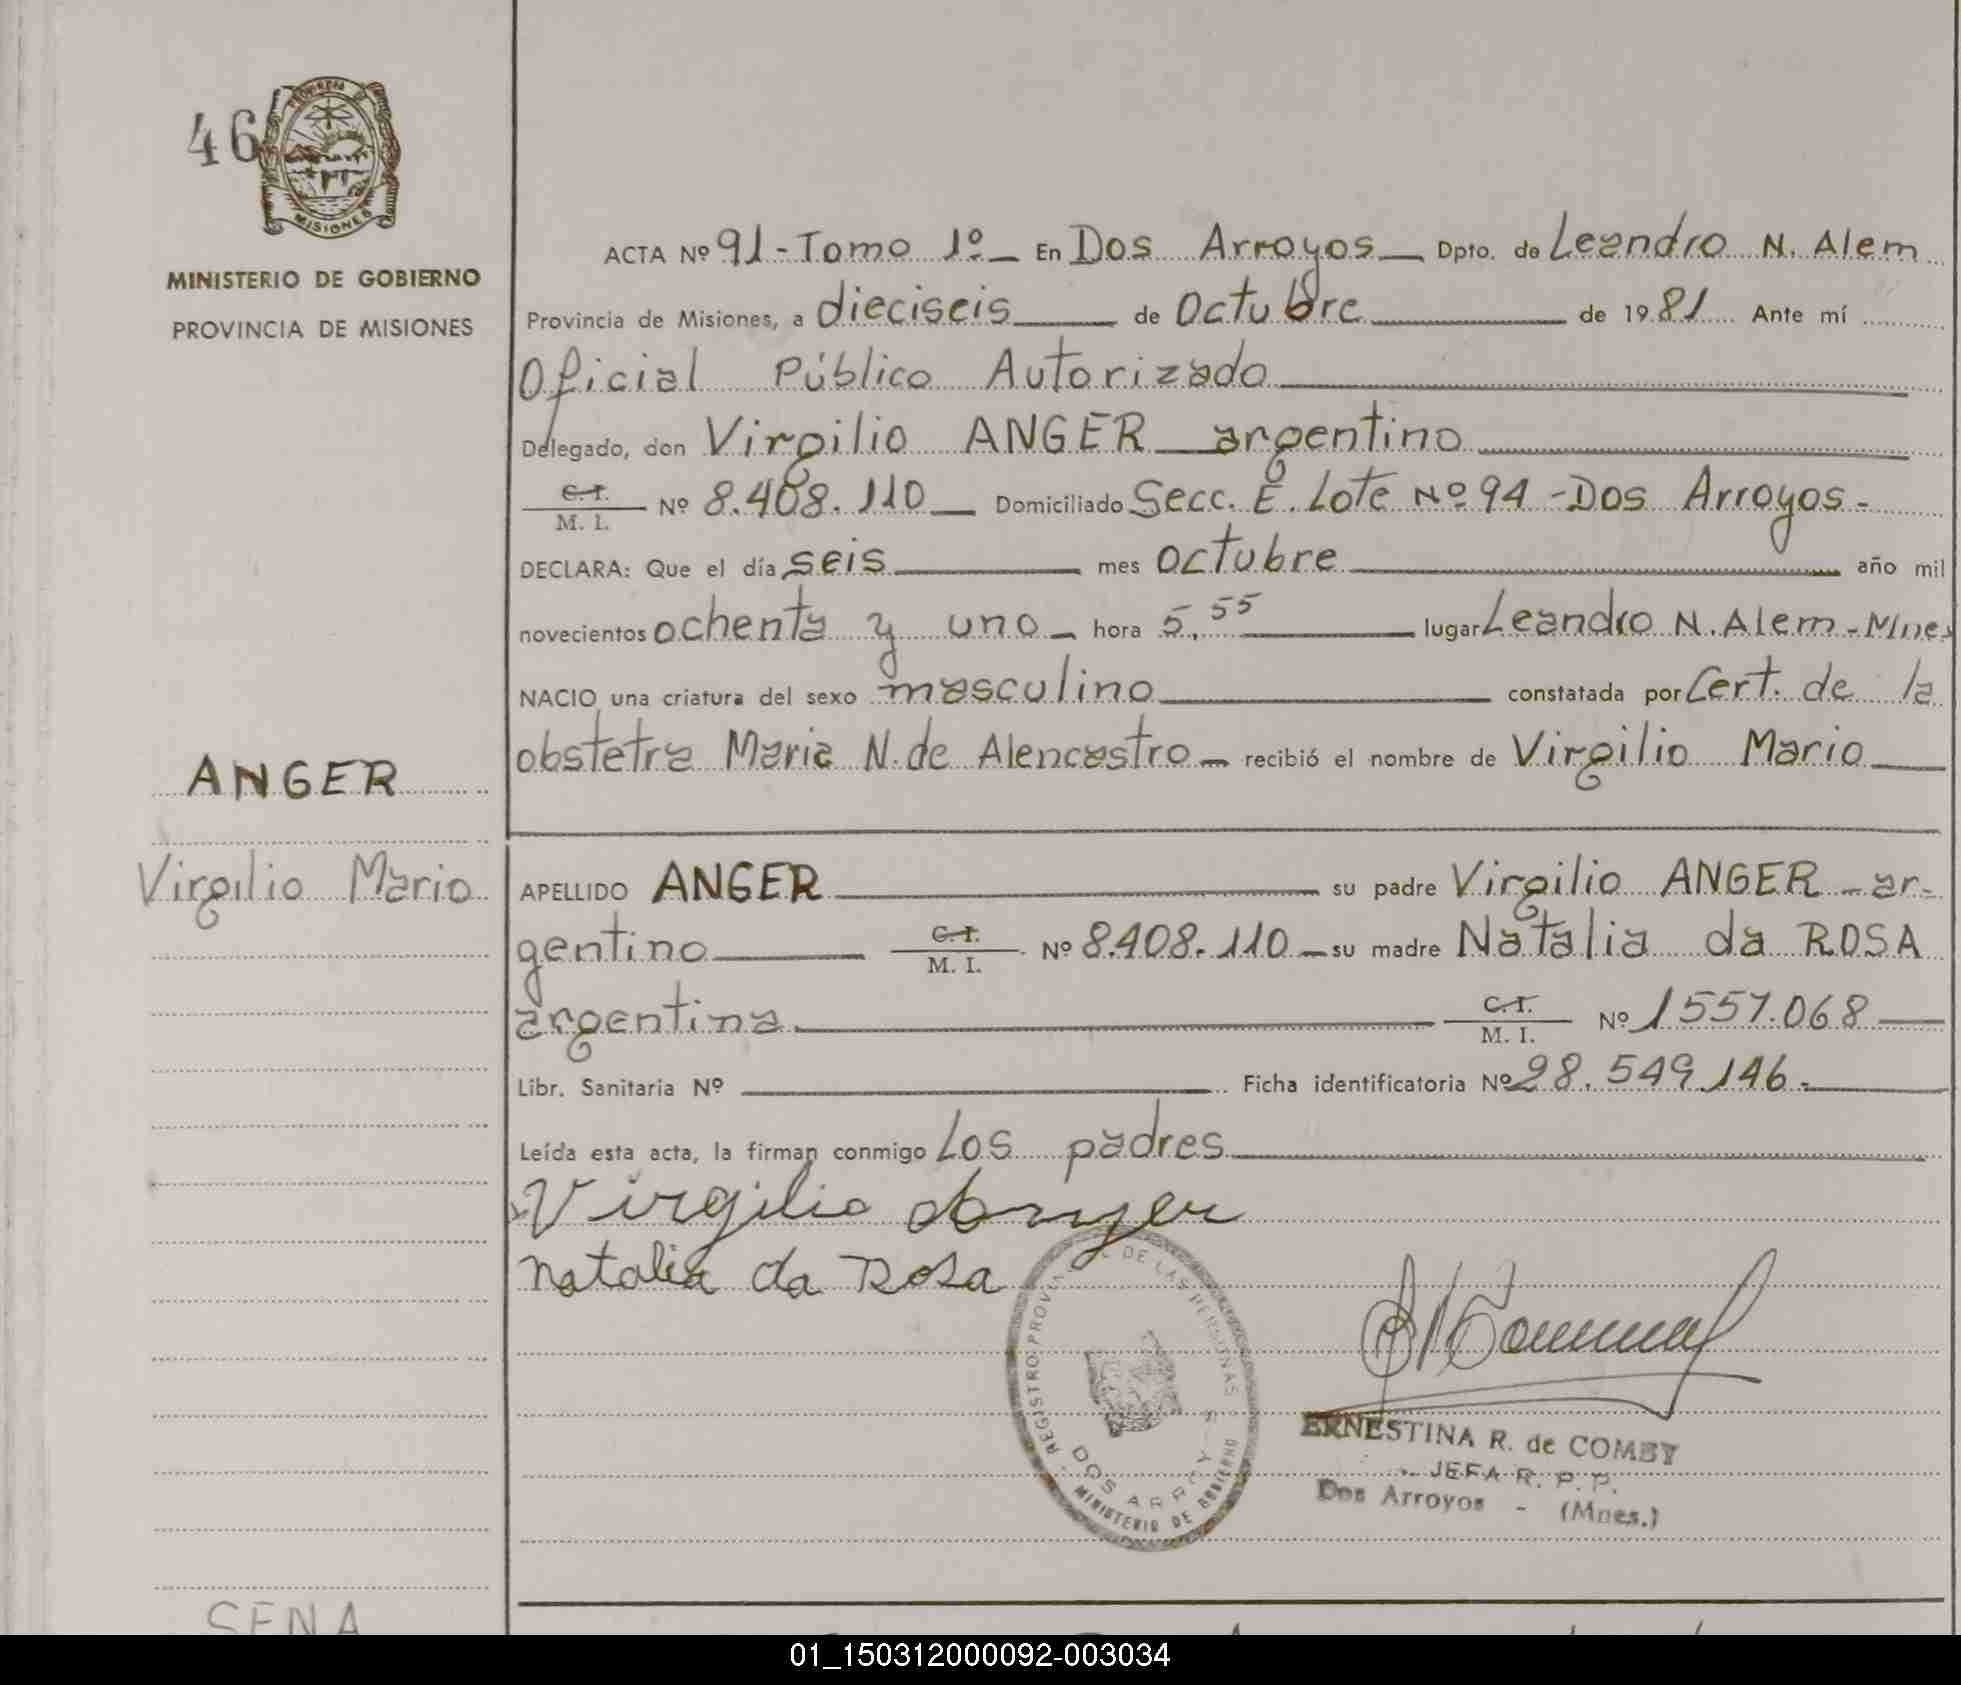 46
PROVINCIA D
MISIONES
MINISTERIO DE GOBIERNO
PROVINCIA DE MISIONES
ACTA Nº 91-Tomo 1º En Dos Arroyos Dpto. de Leandro N. Alem
Provincia de Misiones, a dieciseis de Octubre de 1981 Ante mí
Oficial Público Autorizado
Delegado, don Virgilio ANGER argentino
C. I.
M. I. Nº 8.408.110 Domiciliado Secc. E. Lote Nº 94 -Dos Arroyos-
DECLARA: Que el día seis mes octubre año mil
novecientos ochenta y uno hora 5,55 lugar Leandro N. Alem-Mnes
NACIO una criatura del sexo masculino constatada por Cert. de la
obstetra Maria N. de Alencastro recibió el nombre de Virgilio Mario
ANGER
Virgilio Mario
APELLIDO ANGER su padre Virgilio ANGER ar-
gentino C. I. M. I. Nº 8.408.110 su madre Natalia da ROSA
argentina C. I. M. I. Nº 1557.068
Libr. Sanitaria Nº Ficha identificatoria Nº 28.549.146.-
Leída esta acta, la firman conmigo Los padres
Virgilio Anger
Natalia da Rosa
REGISTRO PROVINCIAL DE LAS PERSONAS
DOS ARROYOS
MINISTERIO DE GOBIERNO
ERNESTINA R. de COMBY
JEFA R. P. P.
Dos Arroyos - (Mnes.)
SENA
01_150312000092-003034